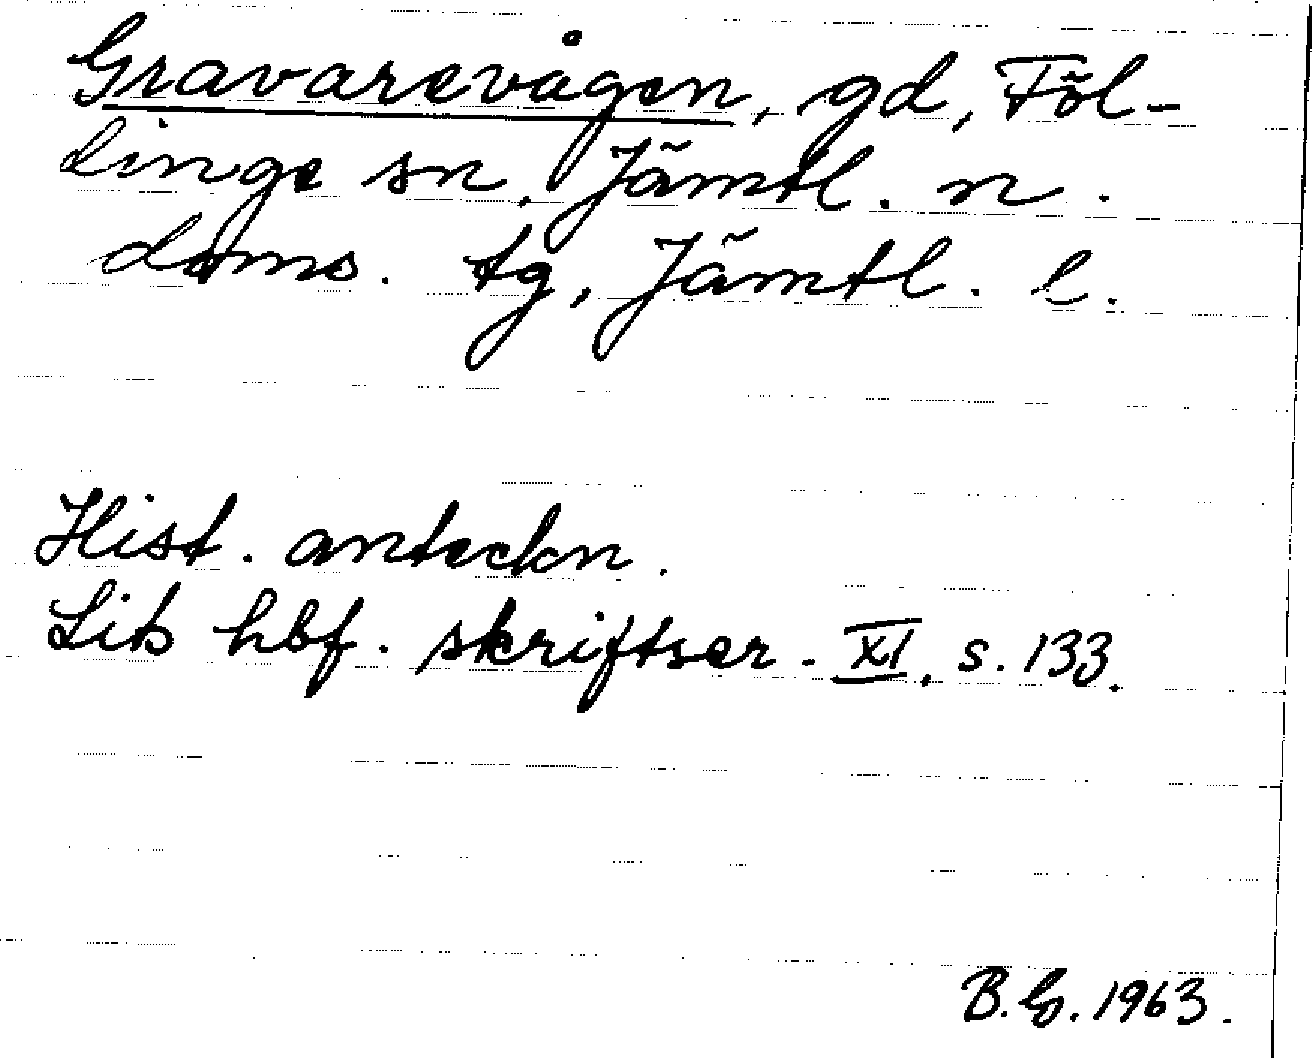 Gravarevågen, gd, Föl-
linge sn, Jämtl. n.
doms. tg, Jämtl. l.
Hist. anteckn.
Lits hbf. skriftser. XI, s. 133.
B.G. 1963.